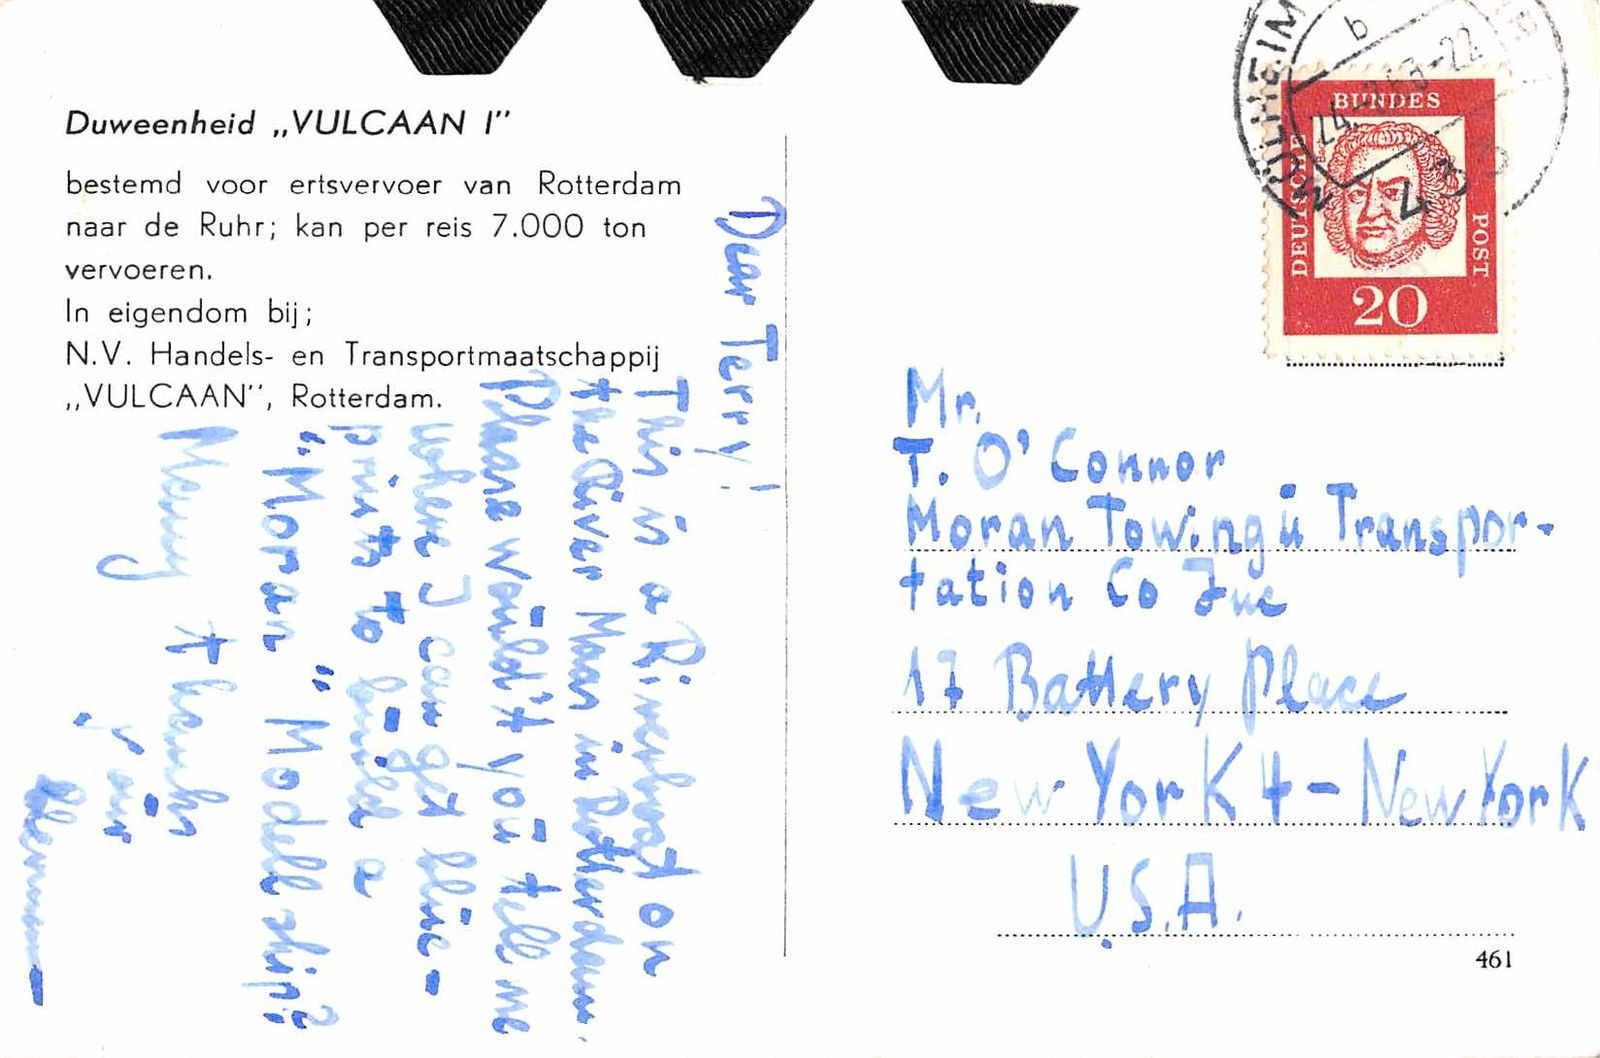 Duweenheid „VULCAAN I”
bestemd voor ertsvervoer van Rotterdam
naar de Ruhr; kan per reis 7.000 ton
vervoeren.
In eigendom bij;
N.V. Handels- en Transportmaatschappij
„VULCAAN”, Rotterdam.
Dear Terry!
This is a Riverboat on
the River Maas in Rotterdam.
Please would't you tell me
where I can get blue-
prints to build a
"Moran" Modellship?
Many thanks
your
MÜLHEIM
b
24. 63-22
BUNDES
DEUTSCHE
POST
20
Mr.
T. O'Connor
Moran Towing u Transpor-
tation Co Inc
17 Battery Place
New York 4 - New York
U.S.A.
461